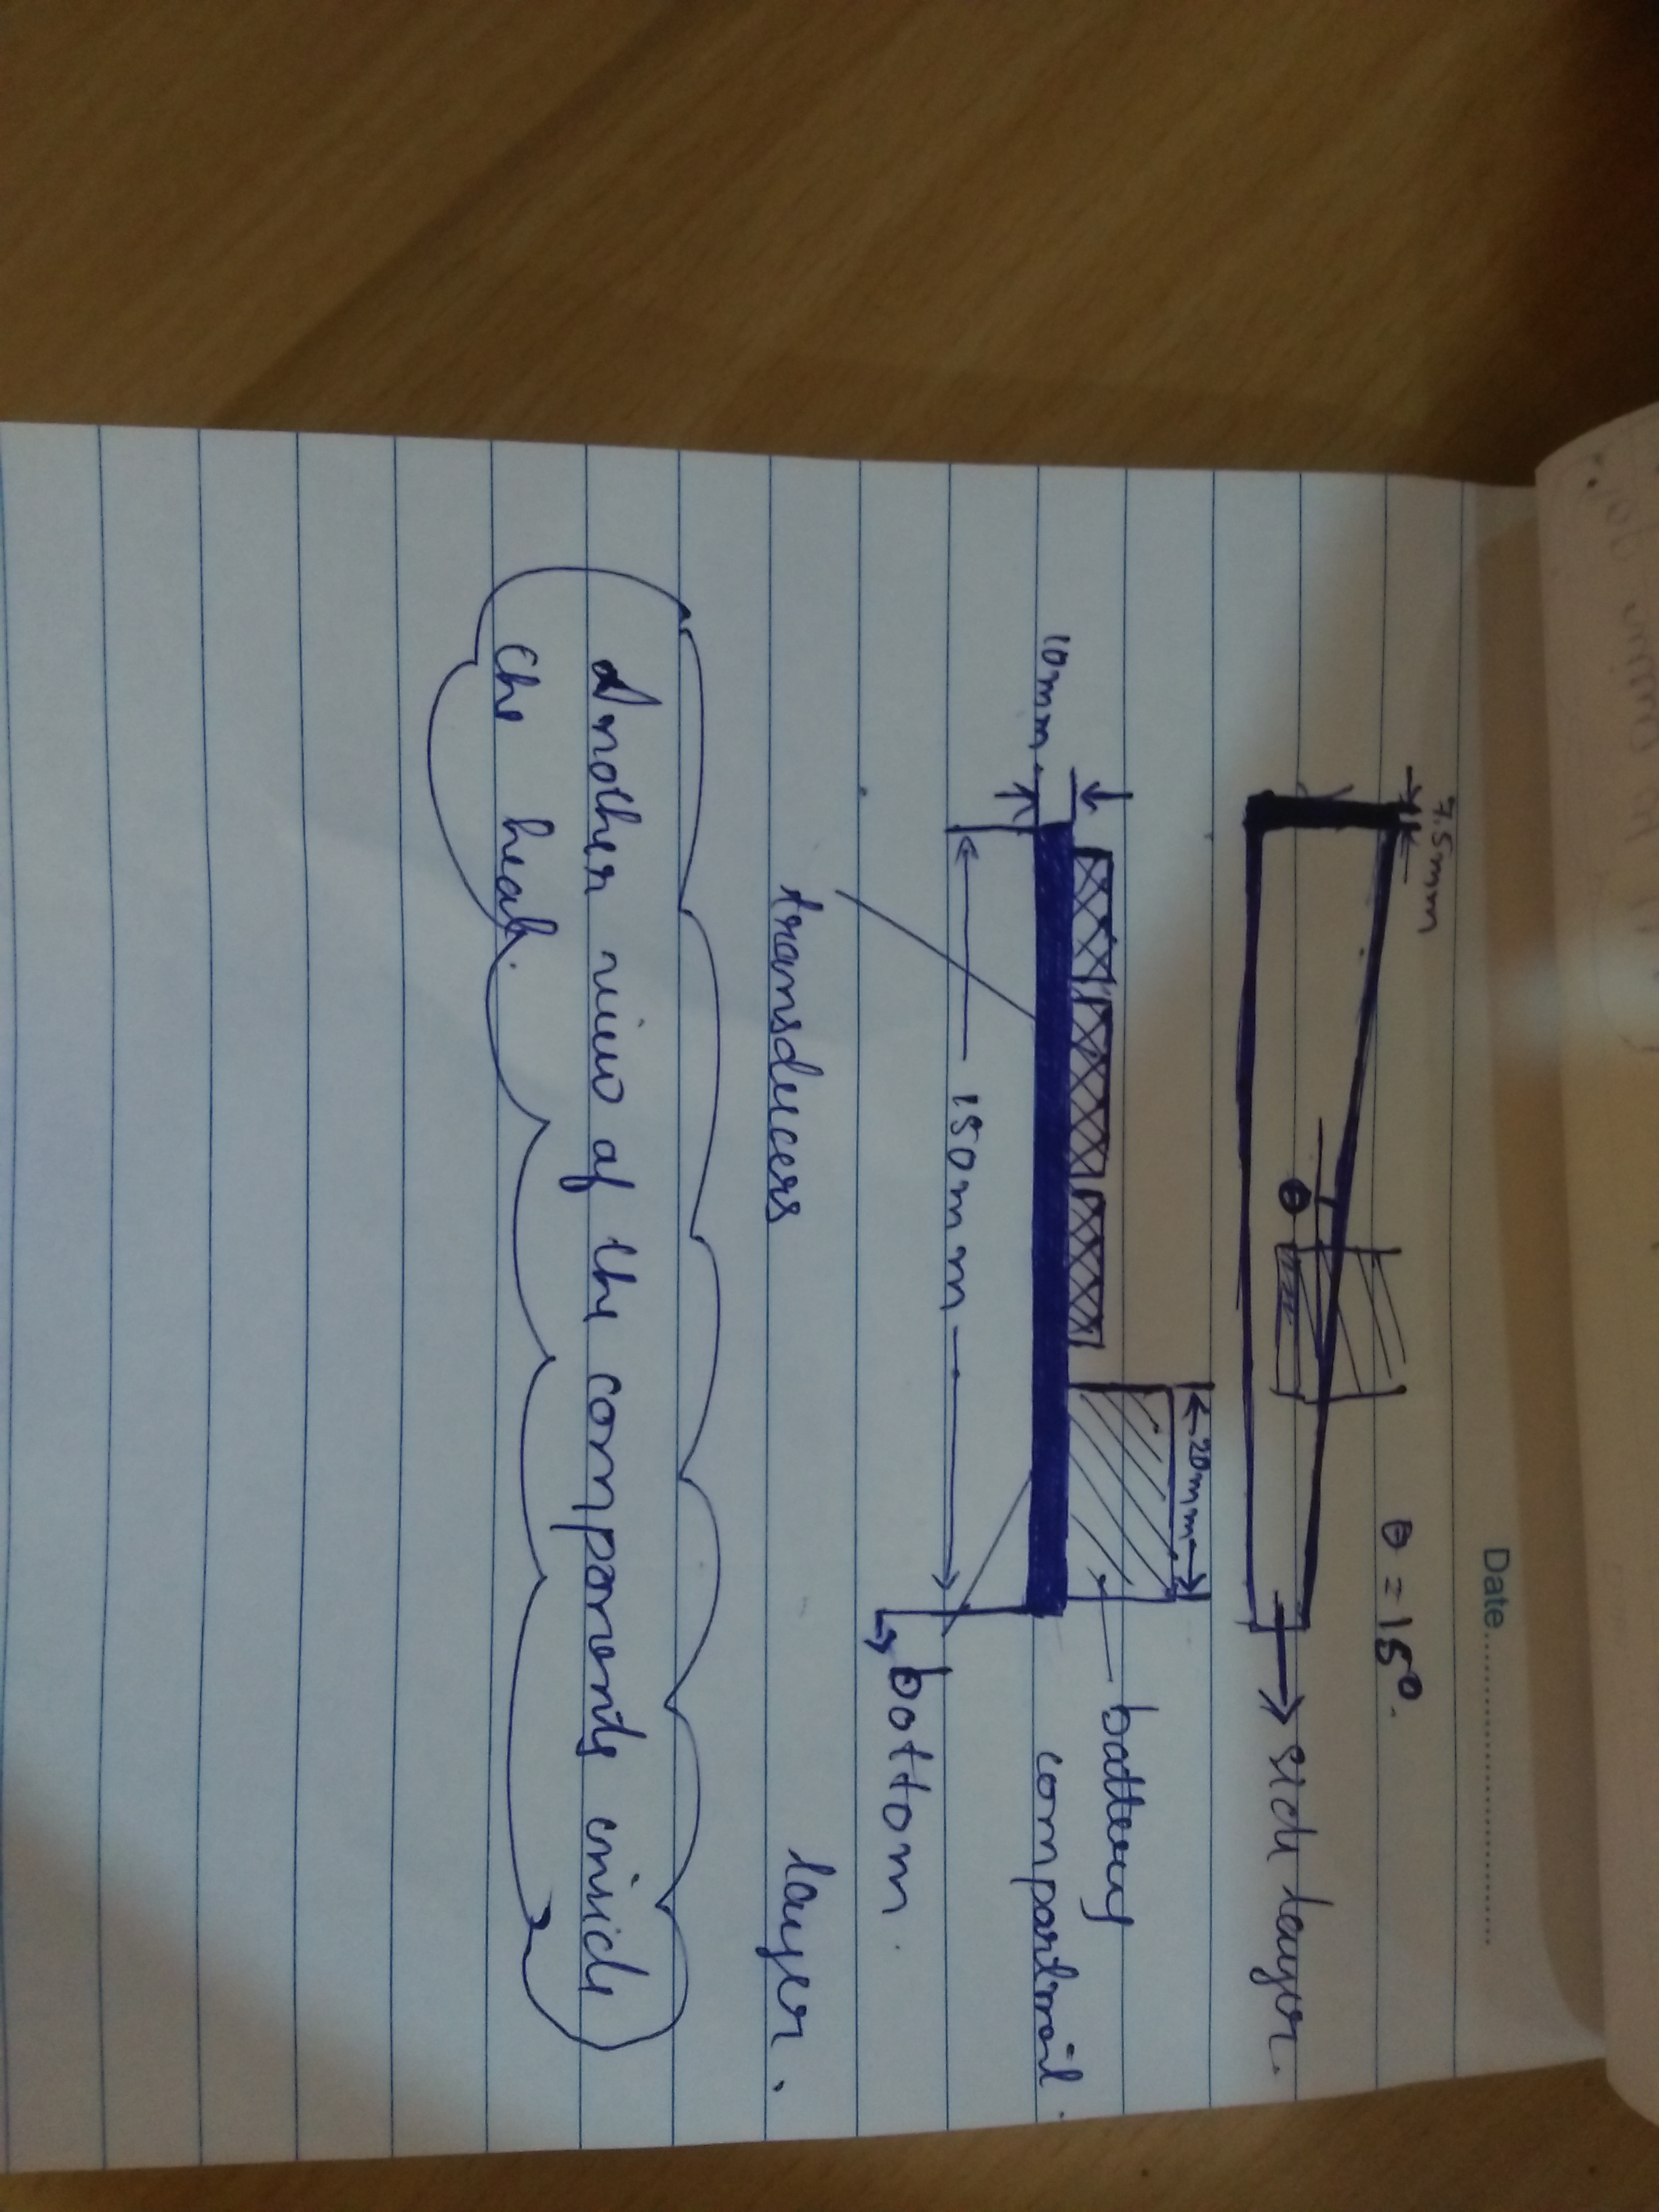 Date
7.5mm
θ = 15°.
θ
side layer.
20mm
battery
compartment.
10mm
150mm
bottom
transducers
layer.
Another view of the components inside
the head.